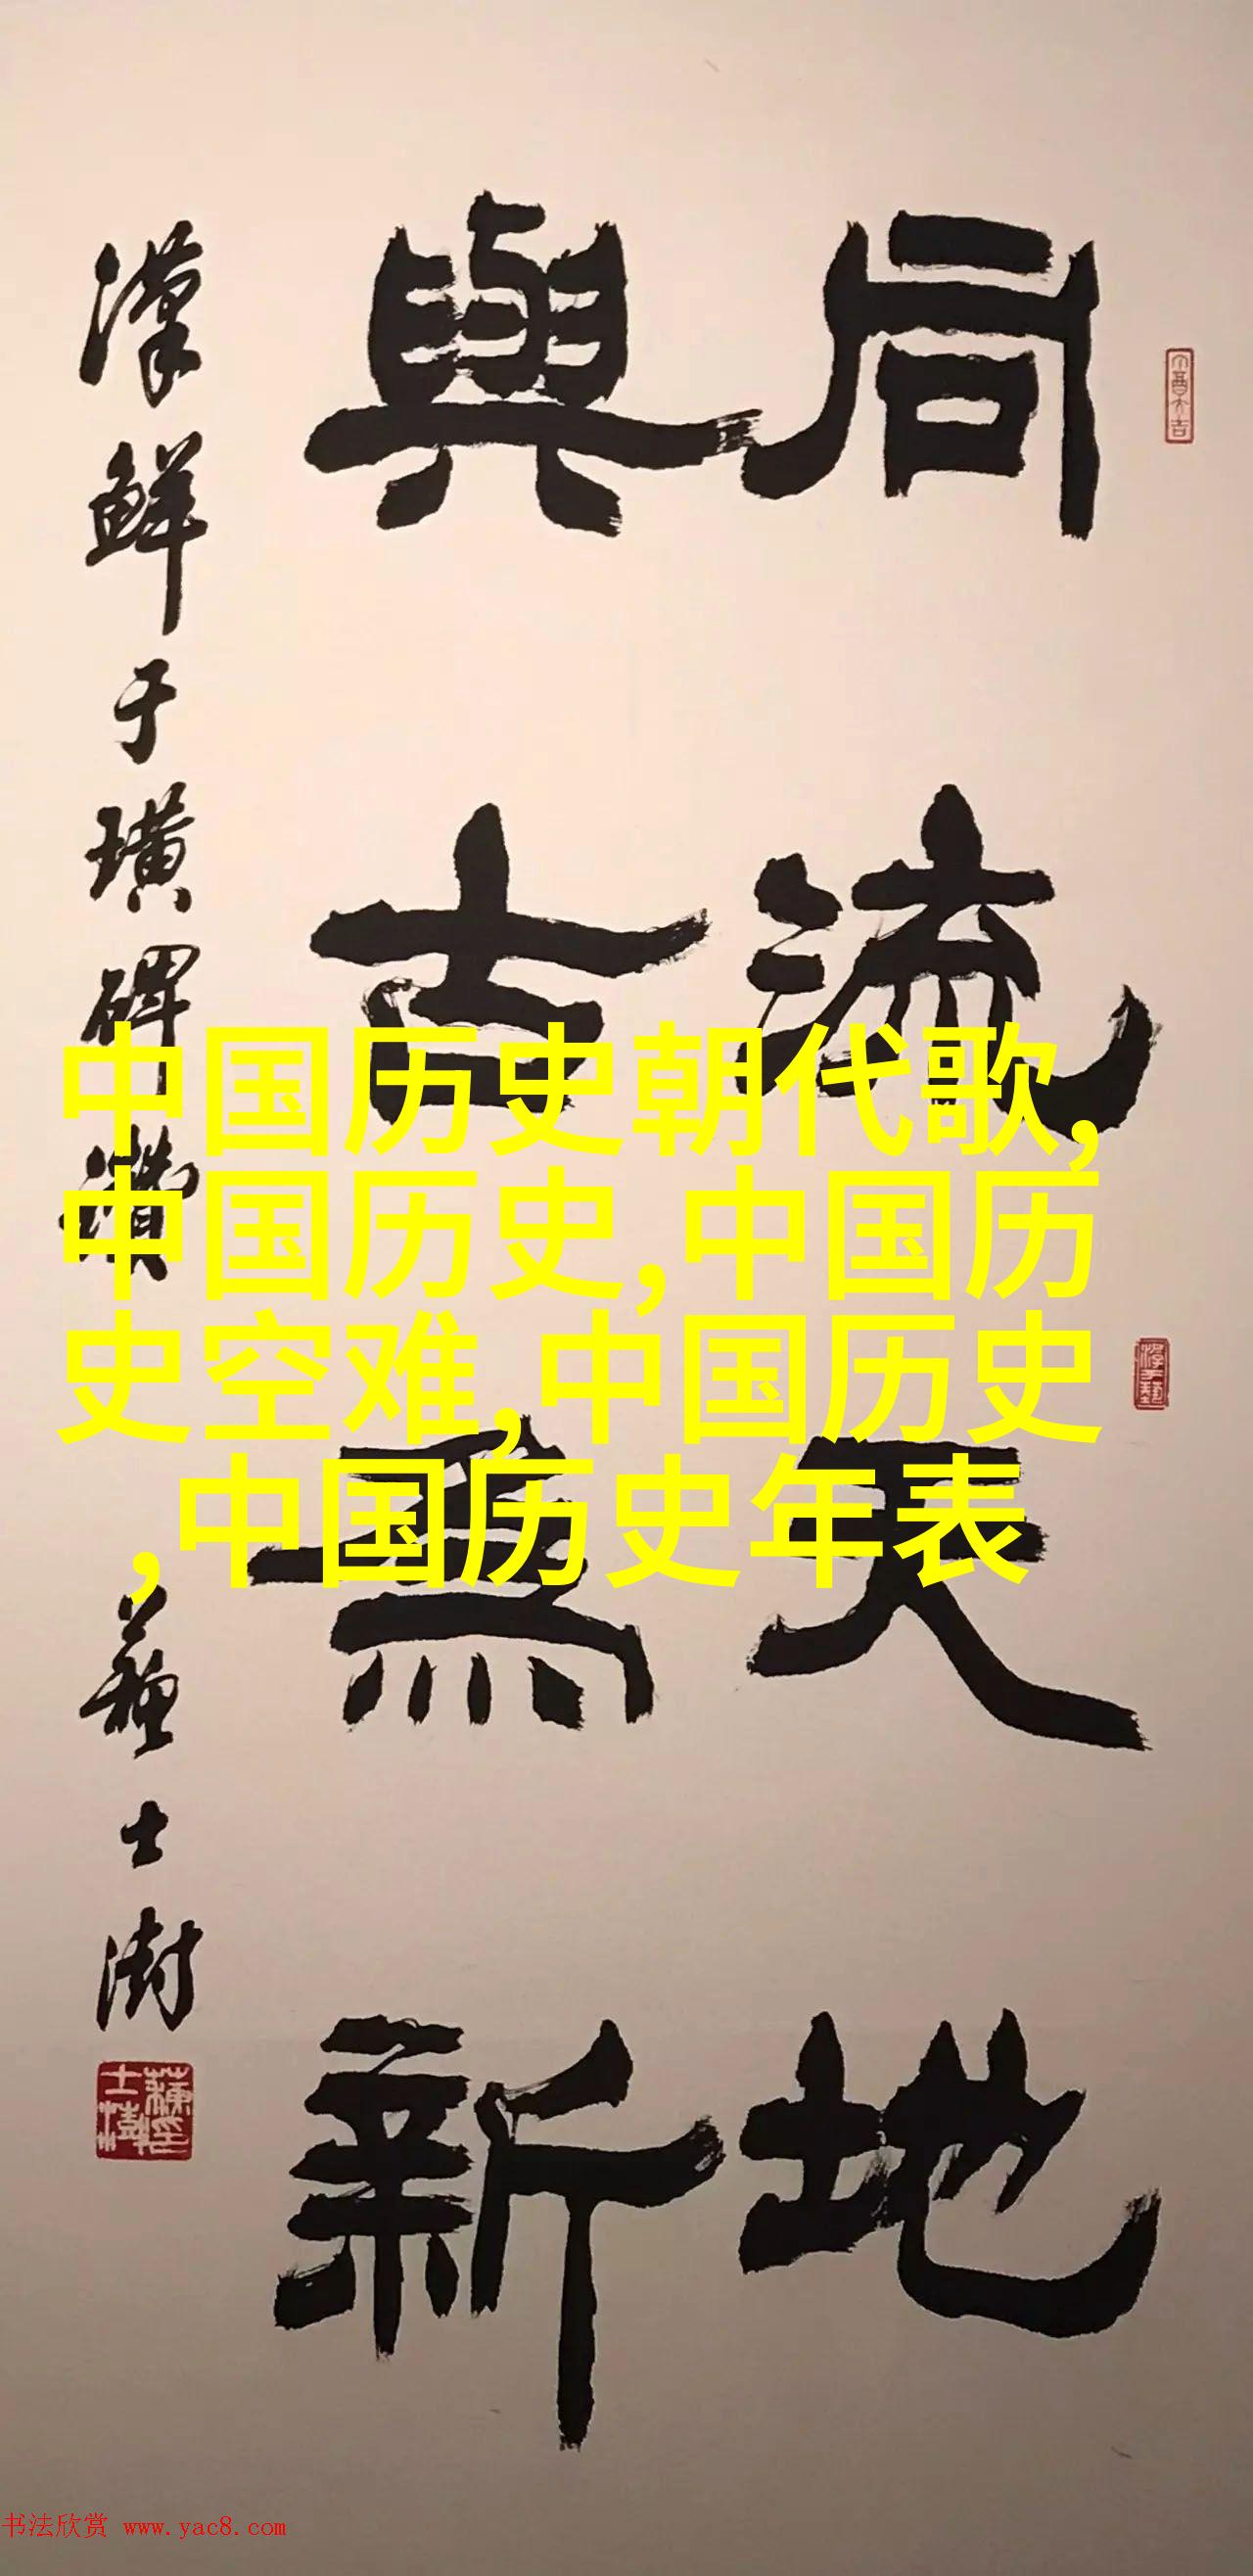 同流天地
與古為新
漢鮮于璜碑
蘇士澍
中国历史朝代歌,
中国历史,中国历
史空难,中国历史
,中国历史年表
书法欣赏 www.yac8.com